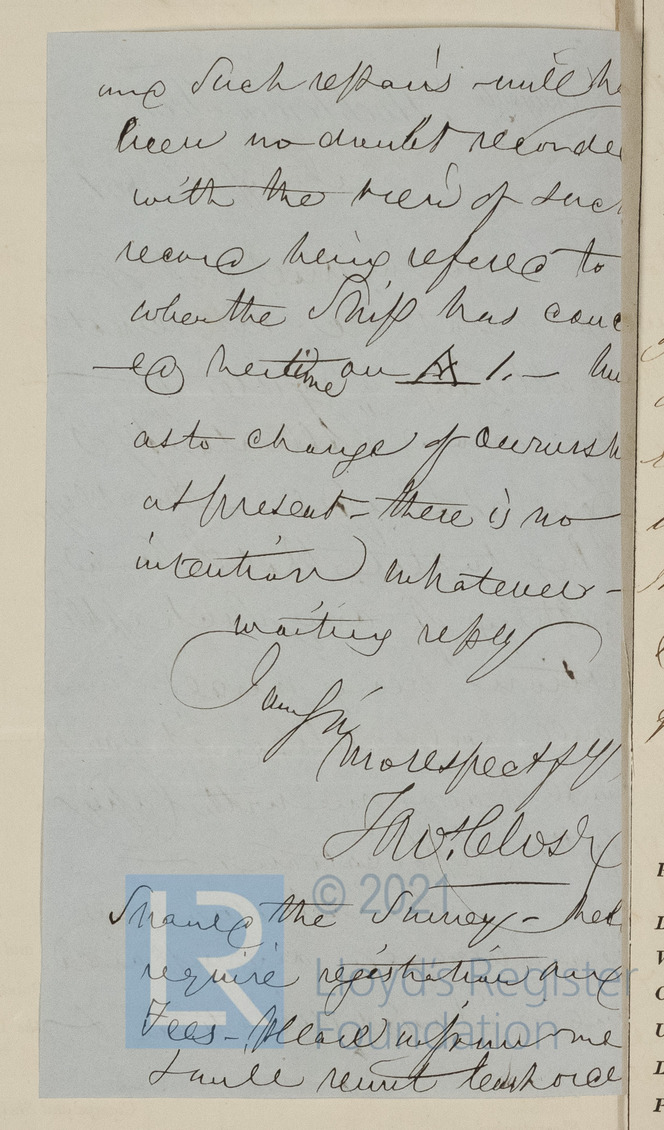 and such repairs will ha
been no doubt recorded
with the view of such
record being refered to
when the Ship has conc
-ed her time on A 1. —
as to change of ownersh
at present - there is no
intention whatever -
waiting reply
I am Sir
mo respectfy
Should the Survey -
require registration and
Fees - please inform me
I will remit
© 2021
LR
Lloyd's Register
Foundation